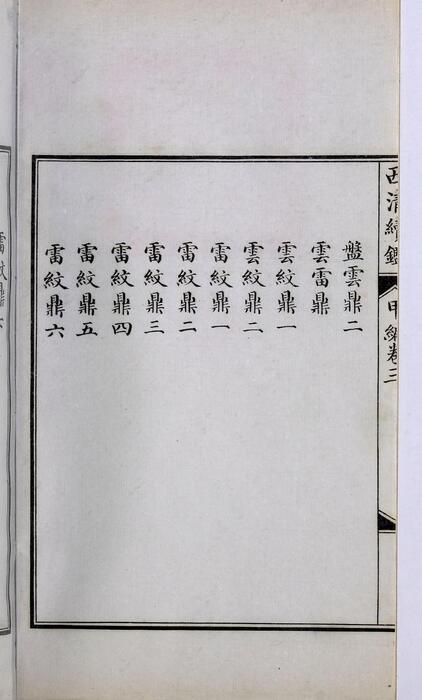 西清續鑑 甲編卷三
盤雲鼎二
雲雷鼎
雲紋鼎一
雲紋鼎二
雷紋鼎一
雷紋鼎二
雷紋鼎三
雷紋鼎四
雷紋鼎五
雷紋鼎六
雷紋鼎